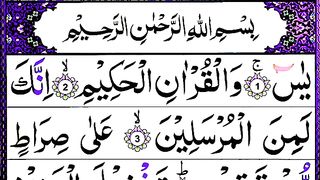 بِسْمِ اللهِ الرَّحْمٰنِ الرَّحِيْمِ
يٰسٓ ۚ ۝1 وَالْقُرْاٰنِ الْحَكِيْمِ ۙ ۝2 اِنَّكَ
لَمِنَ الْمُرْسَلِيْنَ ۙ ۝3 عَلٰى صِرَاطٍ